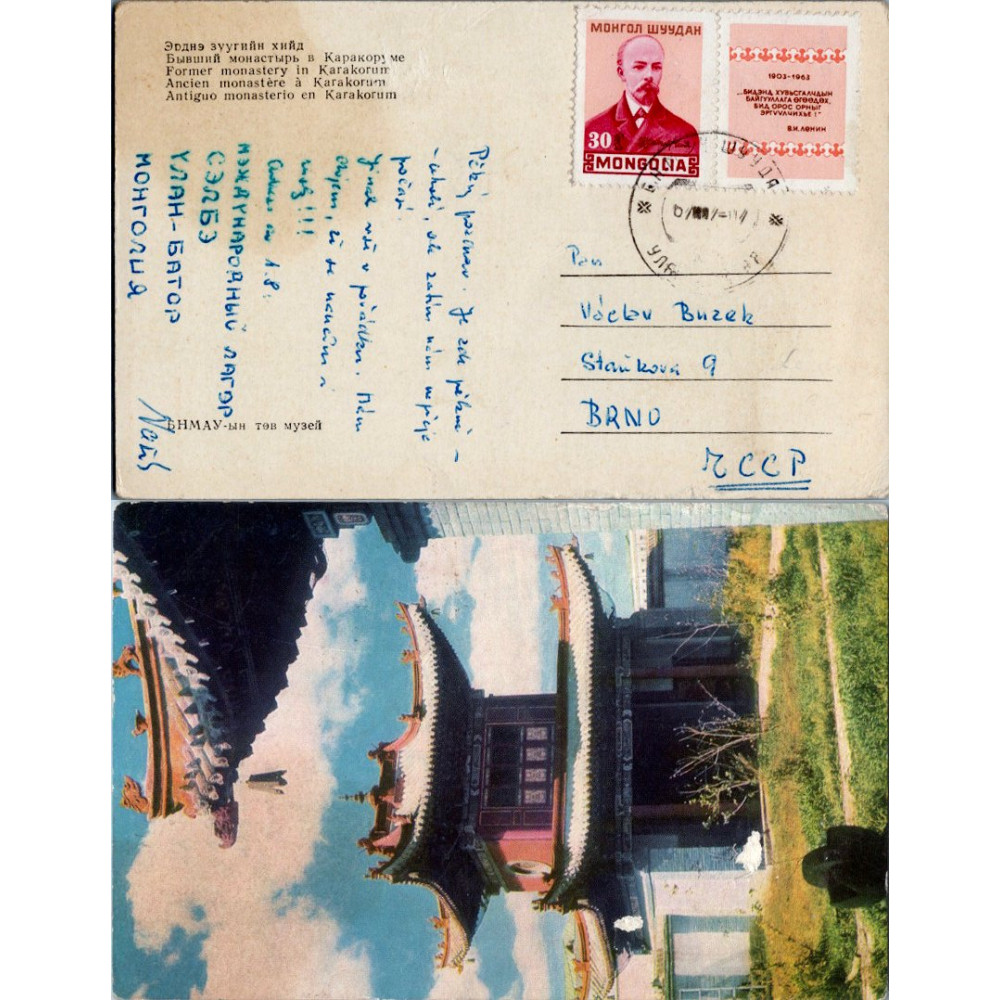 Эрдэнэ зуугийн хийд
Бывший монастырь в Каракоруме
Former monastery in Karakorum
Ancien monastère à Karakorum
Antiguo monasterio en Karakorum
МОНГОЛ ШУУДАН
30
MONGOLIA
1903-1963
„БИДЭНД ХУВЬСГАЛЧДЫН
БАЙГУУЛЛАГА ӨГӨӨДӨХ,
БИД ОРОС ОРНЫГ
ЭРГҮҮЛЧИХЬЕ!"
В.И.ЛЕНИН
Pěkný pozdrav. Je zde pěkně
- ale zatím nám nepřeje
počasí.
Jinak vše v pořádku. Mám
dojem, že se
moc!!!
1.8.
МЭЖДУНАРОДНЫЙ ЛАГЭР
СЭЛБЭ
УЛАН-БАТОР
МОНГОЛИЯ
БНМАУ-ын төв музей
Pan
Václav Buzek
Staňkova 9
BRNO
ČССР